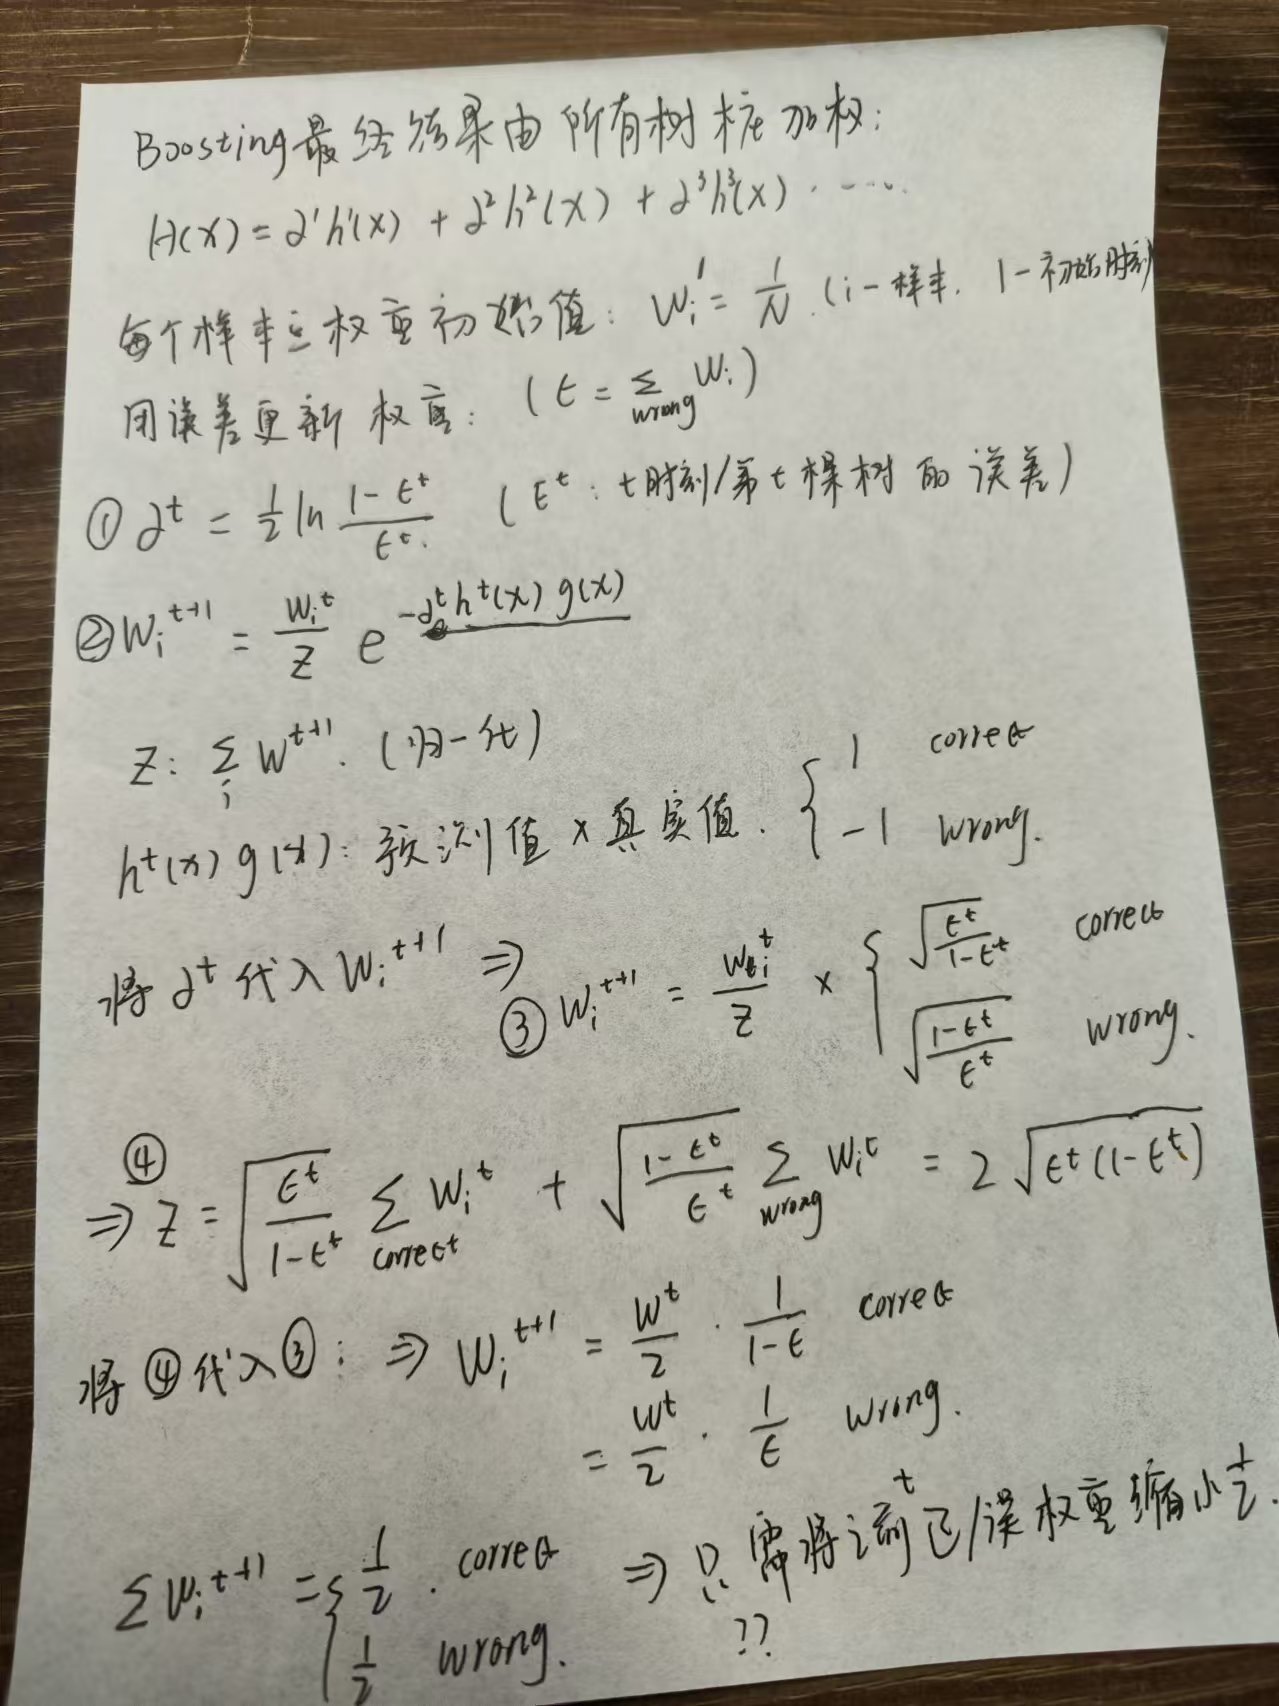 Boosting最终结果由所有树桩加权:
H(x) = α¹h¹(x) + α²h²(x) + α³h³(x) ······
每个样本点权重初始值: Wᵢ¹ = 1/N (i-样本. 1-初始时刻)
用误差更新权重: (ε = Σ_wrong Wᵢ)
① αᵗ = 1/2 ln (1-εᵗ)/εᵗ (εᵗ: t时刻/第t棵树的误差)
② Wᵢᵗ⁺¹ = Wᵢᵗ/Z e^(-αᵗhᵗ(x) g(x))
Z: Σᵢ Wᵗ⁺¹. (归一化)
hᵗ(x) g(x): 预测值×真实值. { 1 correct
-1 wrong.
将αᵗ代入Wᵢᵗ⁺¹ ⇒
③ Wᵢᵗ⁺¹ = Wᵢᵗ/Z × { √(εᵗ/(1-εᵗ)) correct
√((1-εᵗ)/εᵗ) wrong.
④
⇒ Z = √(εᵗ/(1-εᵗ)) Σ_correct Wᵢᵗ + √((1-εᵗ)/εᵗ) Σ_wrong Wᵢᵗ = 2√(εᵗ(1-εᵗ))
将④代入③: ⇒ Wᵢᵗ⁺¹ = Wᵗ/2 · 1/(1-ε) correct
= Wᵗ/2 · 1/ε wrong.
ΣWᵢᵗ⁺¹ = { 1/2 . correct ⇒ 只需将 t 正/误权重缩小1/2.
1/2 wrong. ??